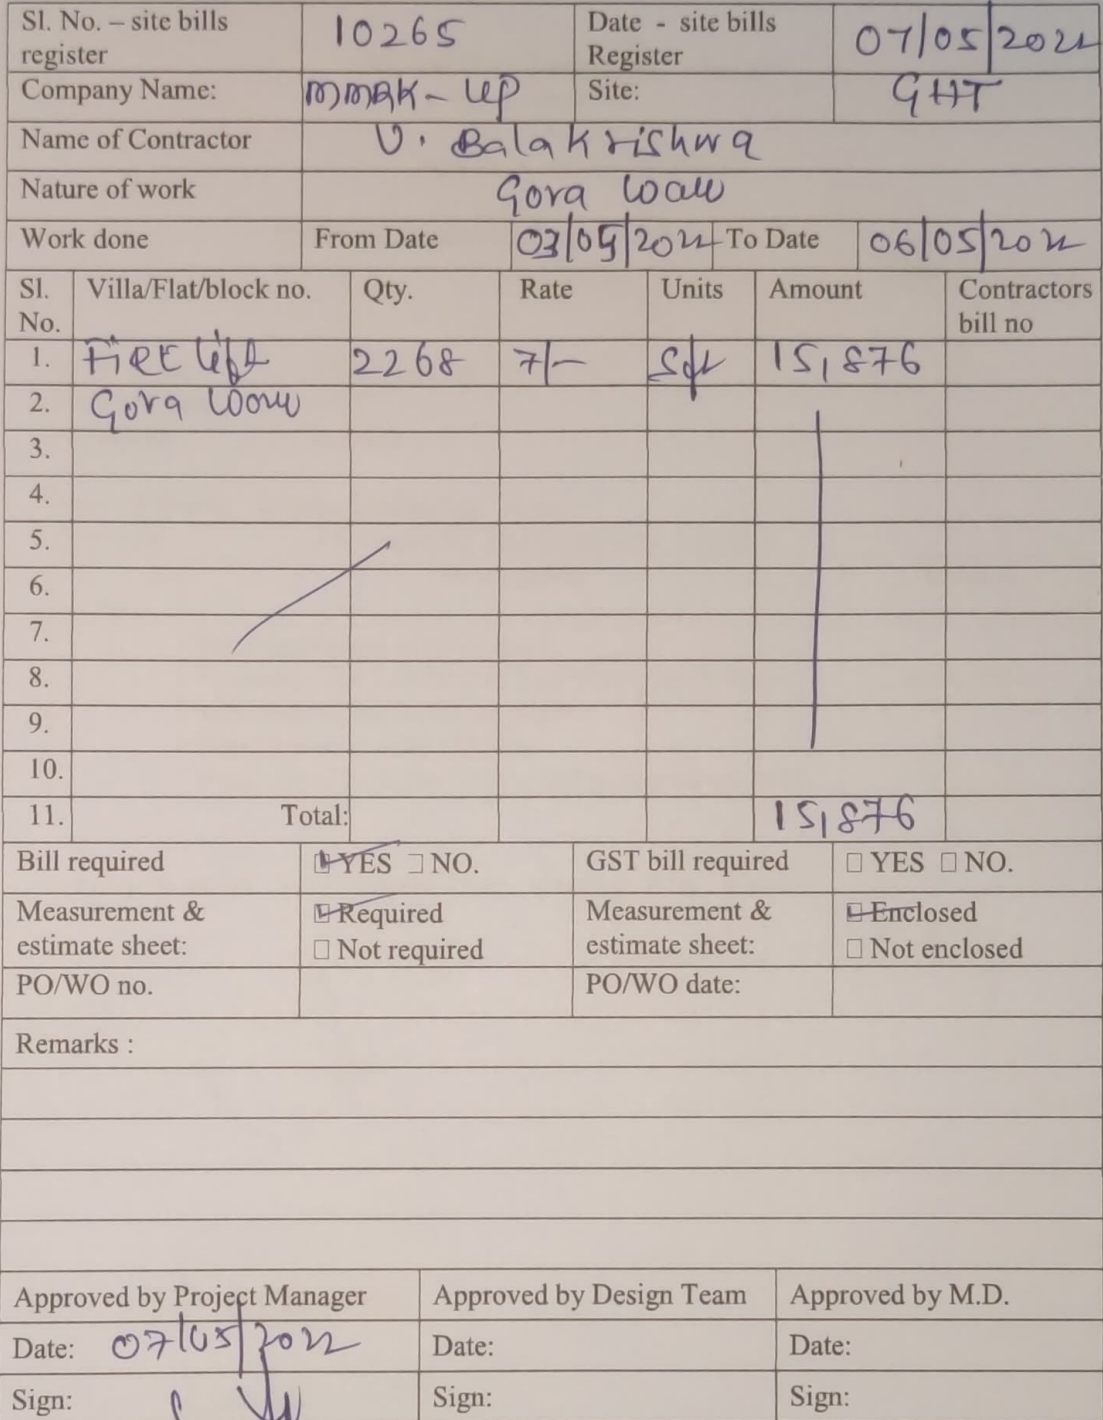 Sl. No. – site bills register 10265 Date - site bills Register 07/05/2022
Company Name: MMRK-LLP Site: GHT
Name of Contractor V. Balakrishna
Nature of work Gova
Work done From Date 03/05/2022 To Date 06/05/2022
Sl. No. Villa/Flat/block no. Qty. Rate Units Amount Contractors bill no
1. 2268 7/- Sft 15,876
2. Gova
3.
4.
5.
6.
7.
8.
9.
10.
11. Total: 15,876
Bill required ☑ YES ☐ NO. GST bill required ☐ YES ☐ NO.
Measurement & estimate sheet: ☑ Required ☐ Not required Measurement & estimate sheet: ☑ Enclosed ☐ Not enclosed
PO/WO no. PO/WO date:
Remarks :
Approved by Project Manager Approved by Design Team Approved by M.D.
Date: 07/05/2022 Date: Date:
Sign: Sign: Sign: